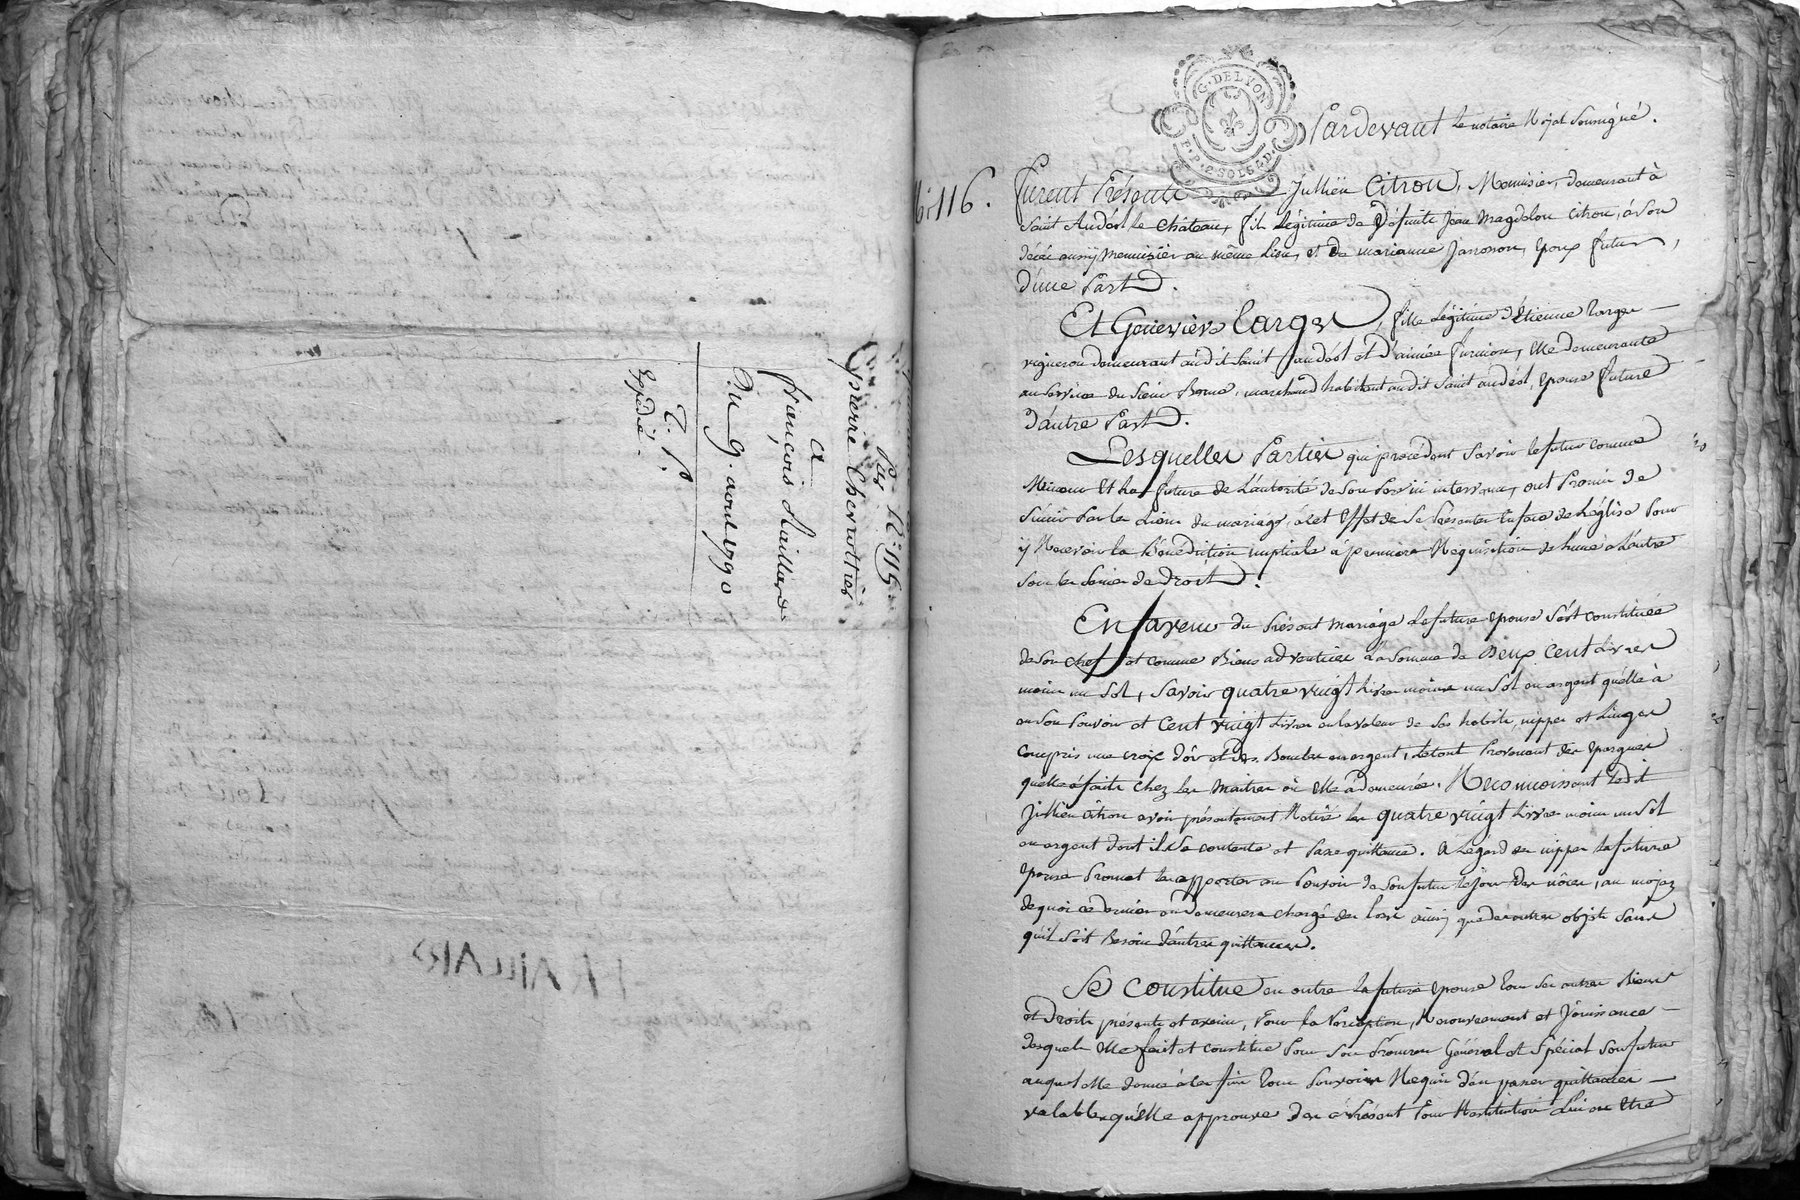 N.º 115
pierre Chervottier
a
françois Maillard
Du 9. avril 1790
Expédié.
G. DE LYON
Pardevant Le notaire Royal Soussigné.
N.º 116.
furent Présents Jullien Citron, Menuisier, demeurant à
Saint Andéol le Château, fils Légitime de défunts Jean Magdelon Citron, à son
décès aussy menuisier au même Lieu, et de marianne Jannon, Epoux futur,
d'une Part.
Et Genevieve Larger, fille Légitime d'Etienne Larger
vigneron demeurant audit Saint andéol et d'aimée furnion, Elle demeurante
au Service du Sieur Borne, marchand habitant audit Saint andéol, Epouse future
d'autre Part.
Lesquelles Parties qui procèdent Savoir le futur comme
Mineur Et La future de L'autorité de Son Pere ici intervenu, ont Promis de
S'unir Par les Liens du mariage, à cet Effet de Se Presenter En face de L'église Pour
y Recevoir la Bénédiction nuptiale à premiere Réquisition de L'une à L'autre
Sous les Peines de Droit.
En faveur du Présent mariage La future Epouse S'est constituée
de Son chef et comme Biens adventices La Somme de Deux cent Livres
moins un Sol, Savoir quatre vingt Livres moins un Sol en argent qu'elle à
en Son Pouvoir et cent vingt Livres en la valeur de Ses habits, nippes et Linges
compris une croix d'or et des Boucles en argent, Le tout Provenant des Epargnes
qu'elle à faite chez Les Maitres où Elle à demeurée. Reconnoissant Ledit
Jullien citron avoir présentement Retiré Les quatre vingt Livres moins un Sol
en argent dont il Se contente et Passe quittance. à L'égard des nippes La future
Epouse Promet Les apporter au Pouvoir de Son futur Le jour des nôces, au moyen
de quoi ce dernier en demeurera chargé des Lors ainsy que des autres objets Sans
qu'il Soit Besoin d'autres quittances.
Se Constitue en outre La future Epouse tous Ses autres Biens
et Droits présents et avenir, Pour la Perception, Recouvrement et Jouissance
desquels Elle fait et constitue Pour Son Procureur Général et Spécial Son futur
auquel Elle donne à ces fins tous Pouvoirs Requis d'en passer quittances
valables qu'elle approuve des à Présent Pour Restitution Lui en Etre